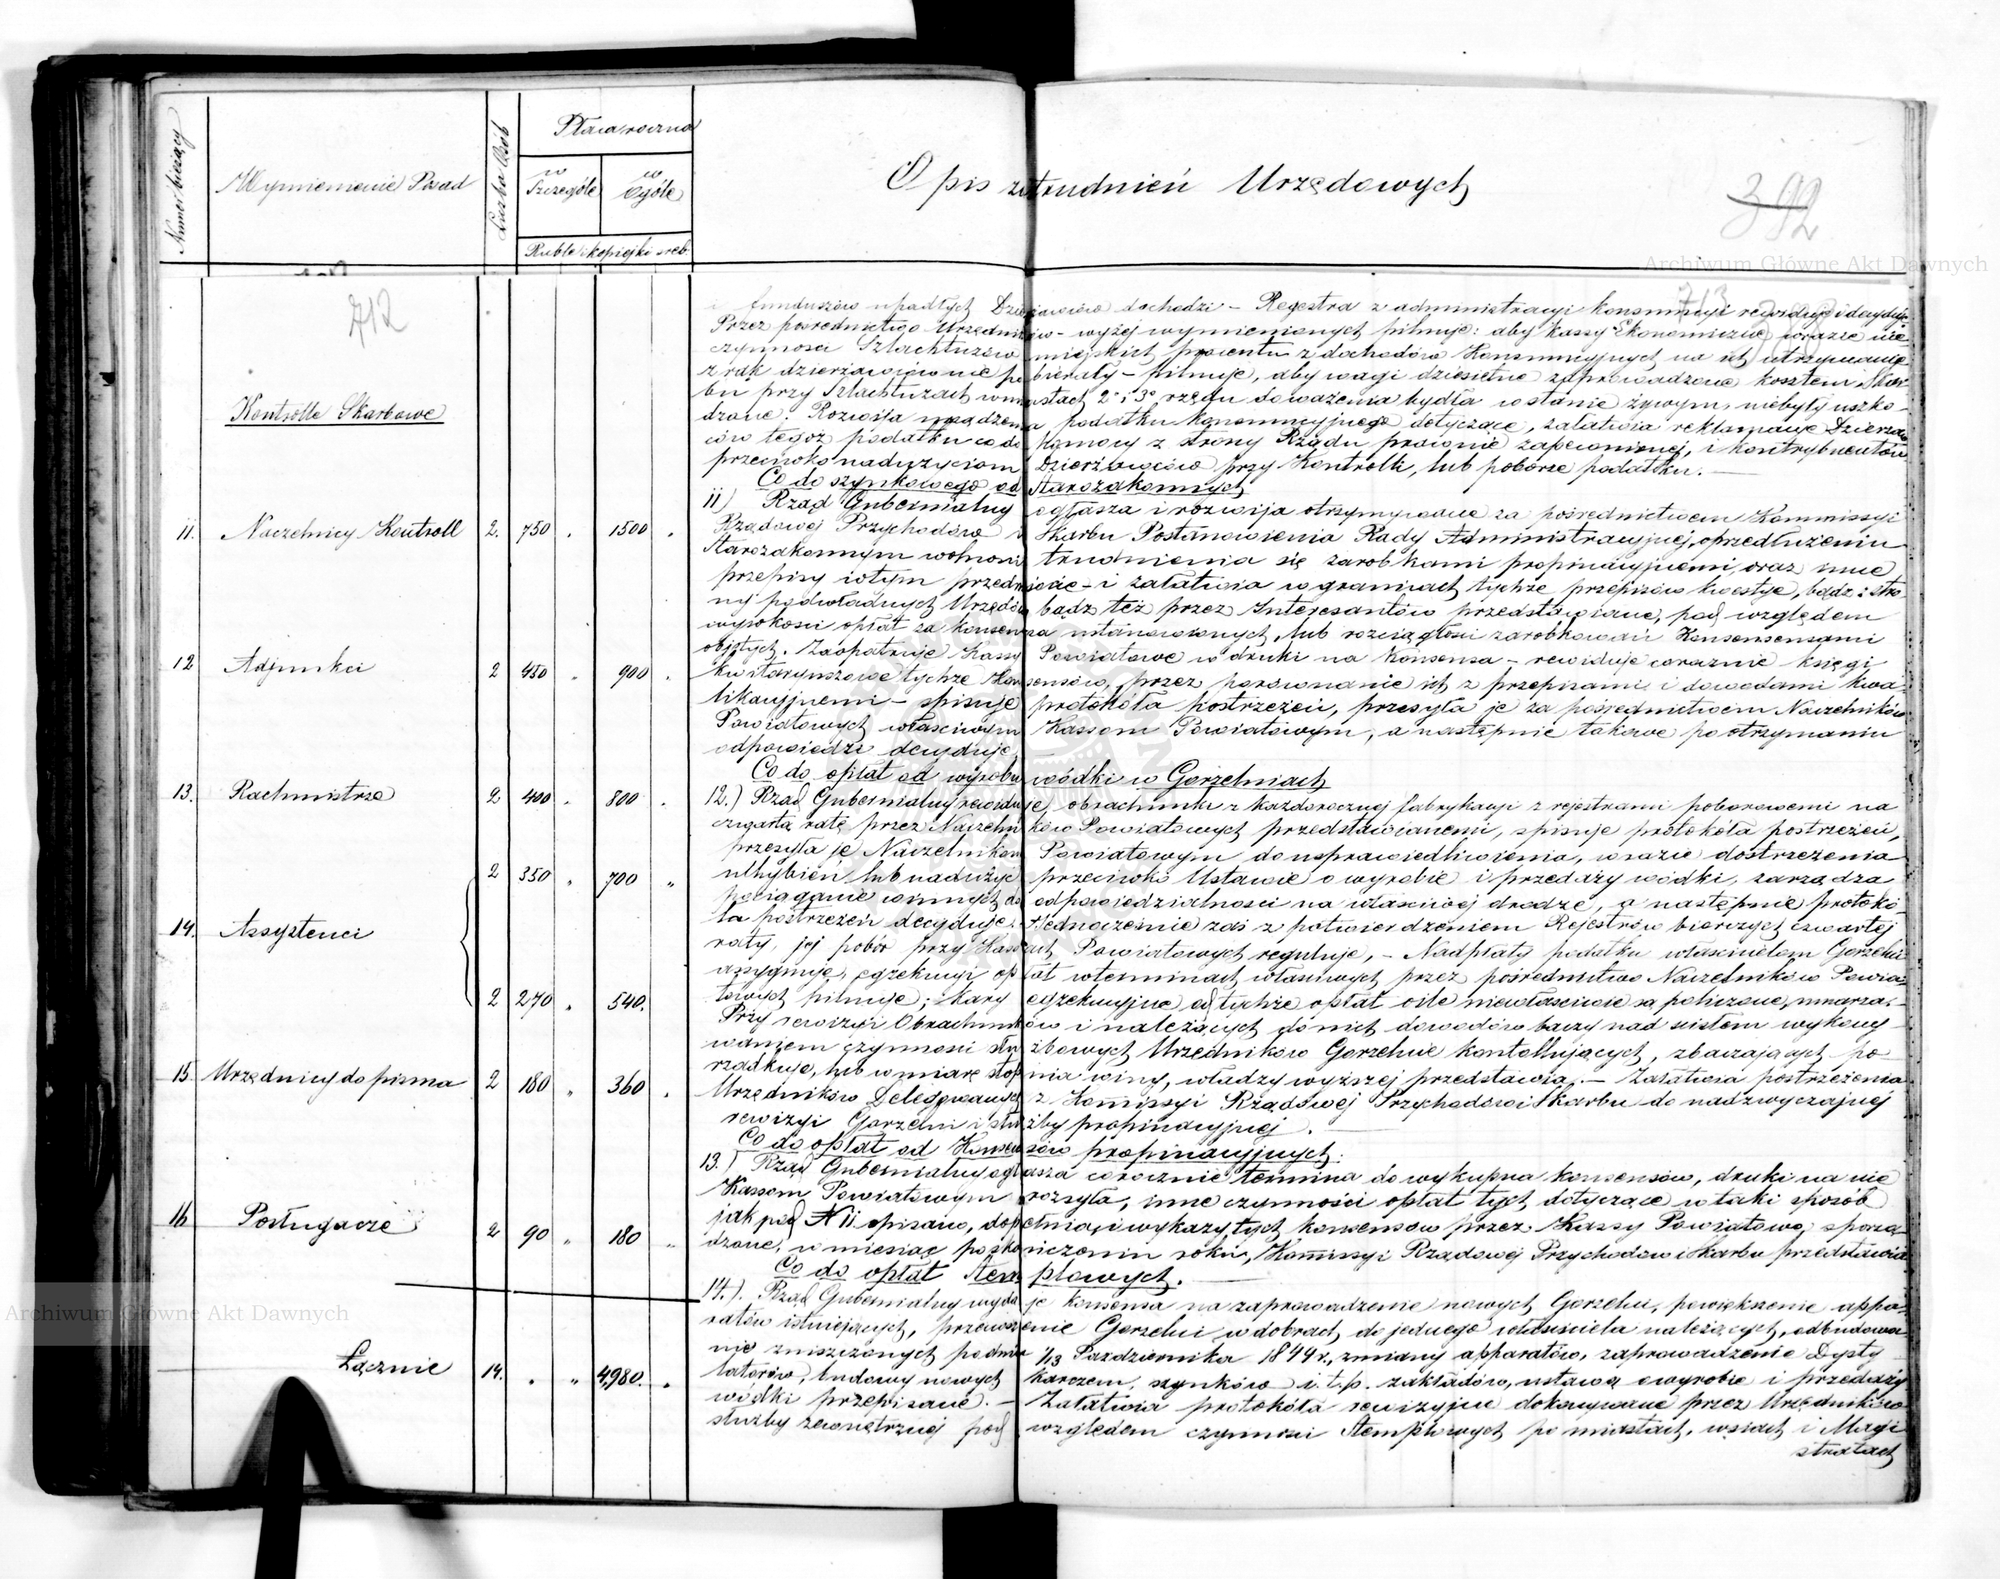 Numer bieżący
Wymienienie Posad
Liczba Osób
Płaca roczna
w Szczególe
w Ogóle
Ruble i kopiejki sreb.
Opis zatrudnień Urzędowych
392
Archiwum Główne Akt Dawnych
712
713
Kontrolle Skarbowe
11. Naczelnicy Kontroll 2. 750 „ 1500 „
12 Adjunkci 2 450 „ 900 „
13. Rachmistrze 2 400 „ 800 „
2 350 „ 700 „
14. Assystenci
2 270 „ 540.
15 Urzędnicy do pisma 2 180 „ 360 „
16 Posługacze 2 90 „ 180 „
Łącznie 14. „ „ 4,980. „
i funduszów upadłych Dzierżawców dochodzi – Regestra z administracyi konsumcyi rewiduje i decyduje
Przez pośrednictwo Urzędników – wyżej wymienionych pilnuje: aby Kassy Ekonomiczne w razie nie
czynności Szlachtuzów miejskich procentu z dochodów Konsumcyjnych na ich utrzymanie
z rąk dzierżawców nie pobierały – pilnuje, aby wagi dziesiętne zaprowadzone kosztem Skar
bu przy Szlachtuzach w miastach 2° i 3° rzędu do ważenia bydła w stanie żywym, niebyły uszko-
dzone. Rozwija urządzenia podatku konsumcyjnego dotyczące, załatwia reklamacje Dzierżaw
ców tegoż podatku co do pomocy z strony Rządu prawnie zapewnionej, i kontrybuentów
przeciwko nadużyciom Dzierżawców przy Kontrolli, lub poborze podatku. –
Co do szynkowego od Starozakonnych
11) Rząd Gubernialny ogłasza i rozwija otrzymywane za pośrednictwem Kommissyi
Rządowej Przychodów i Skarbu Postanowienia Rady Administracyjnej, o przedłużeniu
Starozakonnym wolności trudnienia się zarobkami propinacyjnemi, oraz inne
przepisy w tym przedmiocie – i załatwia w granicach tychże przepisów kwestye, bądź z stro
ny podwładnych Urzędów bądź też przez Interesantów przedstawiane, pod względem
wysokości opłat za konsensa ustanowionych, lub rozciągłości zarobkowań Konsensami
objętych. Zaopatruje Kassy Powiatowe w druki na Konsensa – rewiduje corocznie księgi
kwitaryuszowe tychże konsensów, przez porównanie ich z przepisami i dowodami kwa-
likacyjnemi – spisuje protokóła postrzeżeń, przesyła je za pośrednictwem Naczelników
Powiatowych właściwym Kassom Powiatowym, a następnie takowe po otrzymaniu
odpowiedzi decyduje
Co do opłat od wyrobu wódki w Gorzelniach
12.) Rząd Gubernialny rewiduje, obrachunki z każdorocznej fabrykacyi z rejestrami poborowemi na
czwartą ratę przez Naczelników Powiatowych przedstawianemi, spisuje protokóła postrzeżeń,
przesyła je Naczelnikom Powiatowym do usprawiedliwienia, w razie dostrzeżenia
uchybień lub nadużyć przeciwko Ustawie o wyrobie i przedaży wódki, zarządza
pociąganie winnych do odpowiedzialności na właściwej drodze, a następnie protokó-
ła postrzeżeń decyduje. – Jednocześnie zaś z potwierdzeniem Rejestrów bierczych czwartej
raty, jej pobór przy Kassach Powiatowych reguluje, – Nadpłaty podatku właścicielom Gorzelni
assygnuje, egzekucyi opłat w terminach właściwych przez pośrednictwo Naczelników Powia-
towych pilnuje; Kary egzekucyjne od tychże opłat o ile niewłaściwie są policzone, umarza.
Przy rewizyi Obrachunków i należących do nich dowodów baczy nad ścisłem wykony
waniem czynności służbowych Urzędników Gorzelnie kontrollujących, zbaczających po
rządkuje, lub w miarę stopnia winy, władzy wyższej przedstawia. – Załatwia postrzeżenia
Urzędników Delegowanych z Kommissyi Rządowej Przychodów i Skarbu do nadzwyczajnej
rewizyi Gorzelni i służby propinacyjnej.
Co do opłat od Konsensów propinacyjnych:
13.) Rząd Gubernialny ogłasza corocznie termina do wykupna konsensów, druki na nie
Kassom Powiatowym rozsyła, inne czynności opłat tych dotyczące w taki sposób
jak pod N 11 opisano, dopełnia, i wykazy tych konsensów przez Kassy Powiatowe sporzą
dzone, w miesiąc po skończeniu roku, Komissyi Rządowej Przychodów i Skarbu przedstawia
Co do opłat Stemplowych.
14.) Rząd Gubernialny wydaje konsensa na zaprowadzenie nowych Gorzelni, powiększenie appa-
ratów istniejących, przenoszenie Gorzelni w dobrach do jednego właściciela należących, odbudowa
nie zniszczonych podnia 1/13 Października 1844 r., zmiany apparatów, zaprowadzenie Dysty
latorów, budowy nowych karczem, szynków i.t.p. zakładów, ustawą o wyrobie i przedaży
wódki przepisane. – Załatwia protokóła rewizyjne dokonywane przez Urzędników
służby zewnętrznej pod względem czynności Stemplowych po miastach, wsiach i Magi
stratach
Archiwum Główne Akt Dawnych